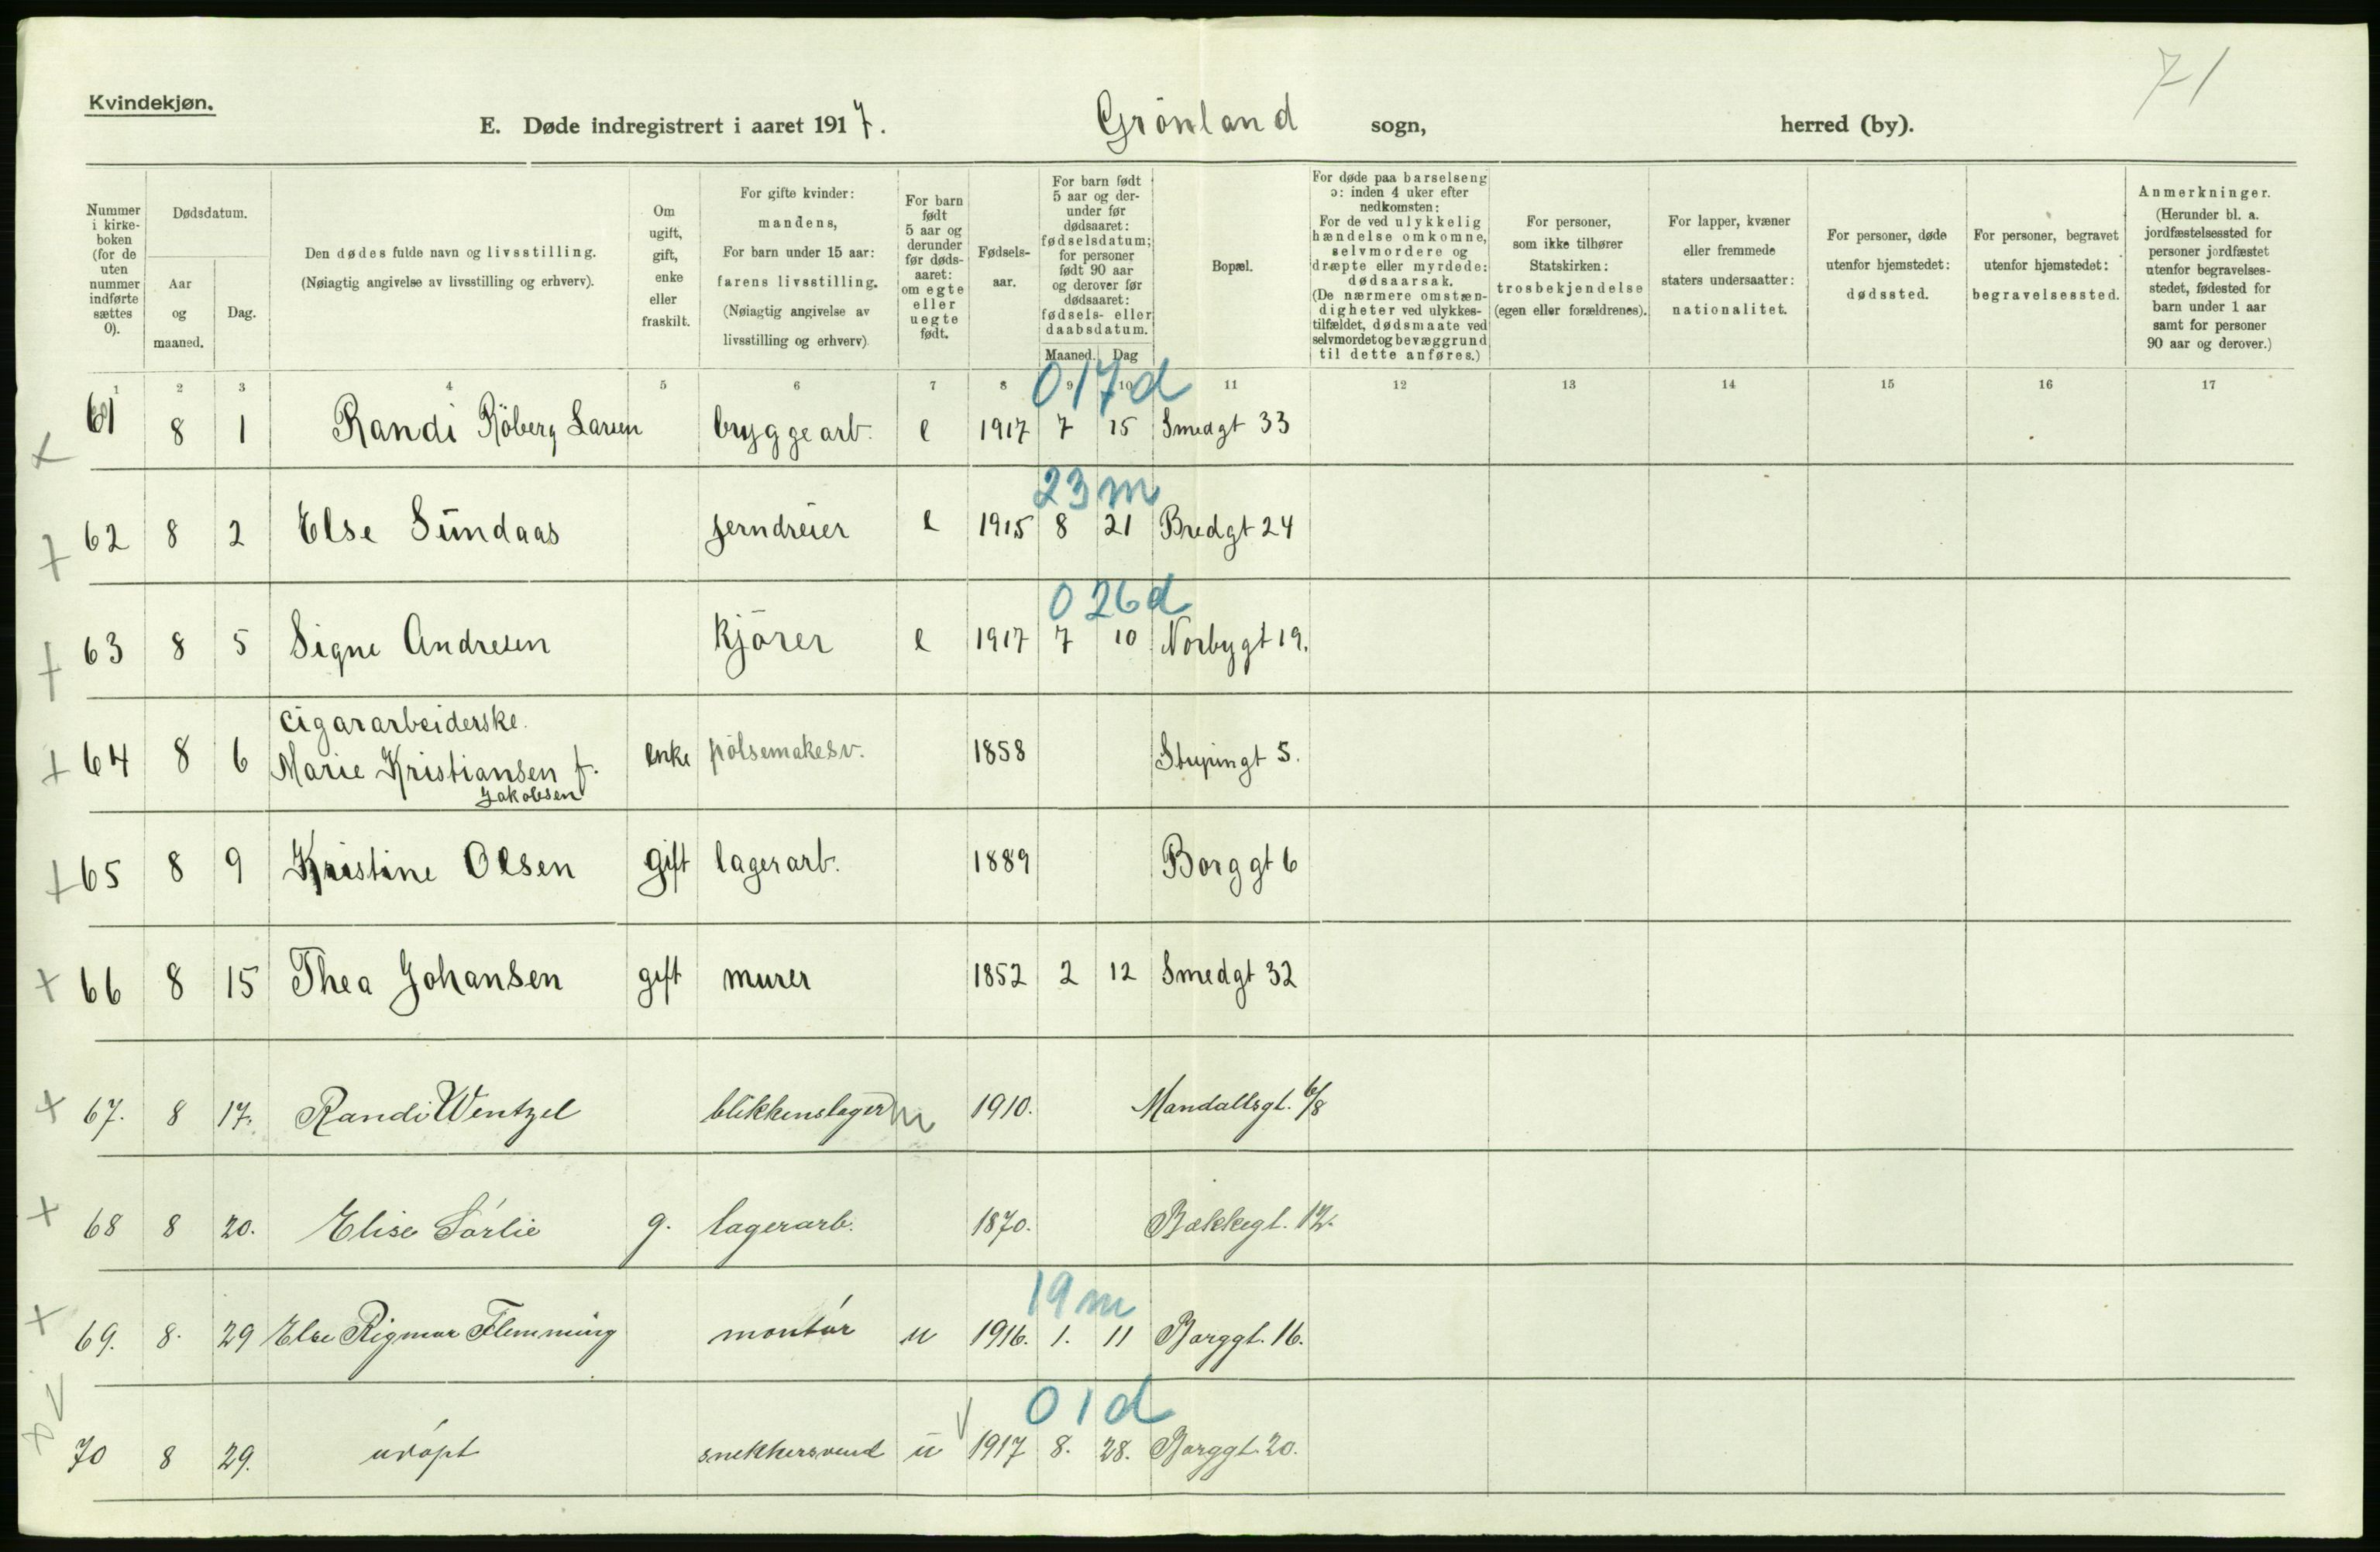 71
Kvindekjøn.
E. Døde indregistrert i aaret 1917. Grönland sogn, herred (by).
Nummer i kirke-boken (for de uten nummer indførte sættes 0).
Dødsdatum.
Aar og maaned.
Dag.
Den dødes fulde navn og livsstilling.
(Nøiagtig angivelse av livsstilling og erhverv).
Om ugift, gift, enke eller fraskilt.
For gifte kvinder: mandens,
For barn under 15 aar: farens livsstilling.
(Nøiagtig angivelse av livsstilling og erhverv).
For barn født 5 aar og derunder før døds-aaret: om egte eller uegte født.
Fødsels-aar.
For barn født 5 aar og der-under før dødsaaret: fødselsdatum; for personer født 90 aar og derover før dødsaaret: fødsels- eller daabsdatum.
Maaned. Dag
Bopæl.
For døde paa barselseng ɔ: inden 4 uker efter nedkomsten:
For de ved ulykkelig hændelse omkomne, selvmordere og dræpte eller myrdede: dødsaarsak.
(De nærmere omstæn-digheter ved ulykkes-tilfældet, dødsmaate ved selvmordet og bevæggrund til dette anføres.)
For personer, som ikke tilhører Statskirken: trosbekjendelse (egen eller forældrenes).
For lapper, kvæner eller fremmede staters undersaatter: nationalitet.
For personer, døde utenfor hjemstedet: dødssted.
For personer, begravet utenfor hjemstedet: begravelsessted.
Anmerkninger.
(Herunder bl. a. jordfæstelsessted for personer jordfæstet utenfor begravelses-stedet, fødested for barn under 1 aar samt for personer 90 aar og derover.)
1 2 3 4 5 6 7 8 9 10 11 12 13 14 15 16 17
0 17 d
61 8 1 Randi Röberg Larsen bryggearb. e 1917 7 15 Smedgt 33
23 m
62 8 2 Else Sundaas jerndreier e 1915 8 21 Bredgt 24
0 26 d
63 8 5 Signe Andresen Kjörer e 1917 7 10 Norbygt 19.
cigararbeiderske.
64 8 6 Marie Kristiansen f. enke pölsemakesv. 1858 Stupingt 5.
Jakobsen
65 8 9 Kristine Olsen gift lagerarb. 1889 Borggt 6
66 8 15 Thea Johansen gift murer 1852 2 12 Smedgt 32
67. 8 17. Randi Wentzel blikkenslager 1910. Mandallsgt. 6/8
68 8 20. Elise Sórlie g. lagerarb. 1870. Bækkegt. 12.
19 m
69. 8. 29 Else Rigmor Flemming montór u 1916. 1. 11 Borggt. 16.
0 1 d
70 8 29. udópt snekkersvend u 1917 8. 28. Borggt. 20.